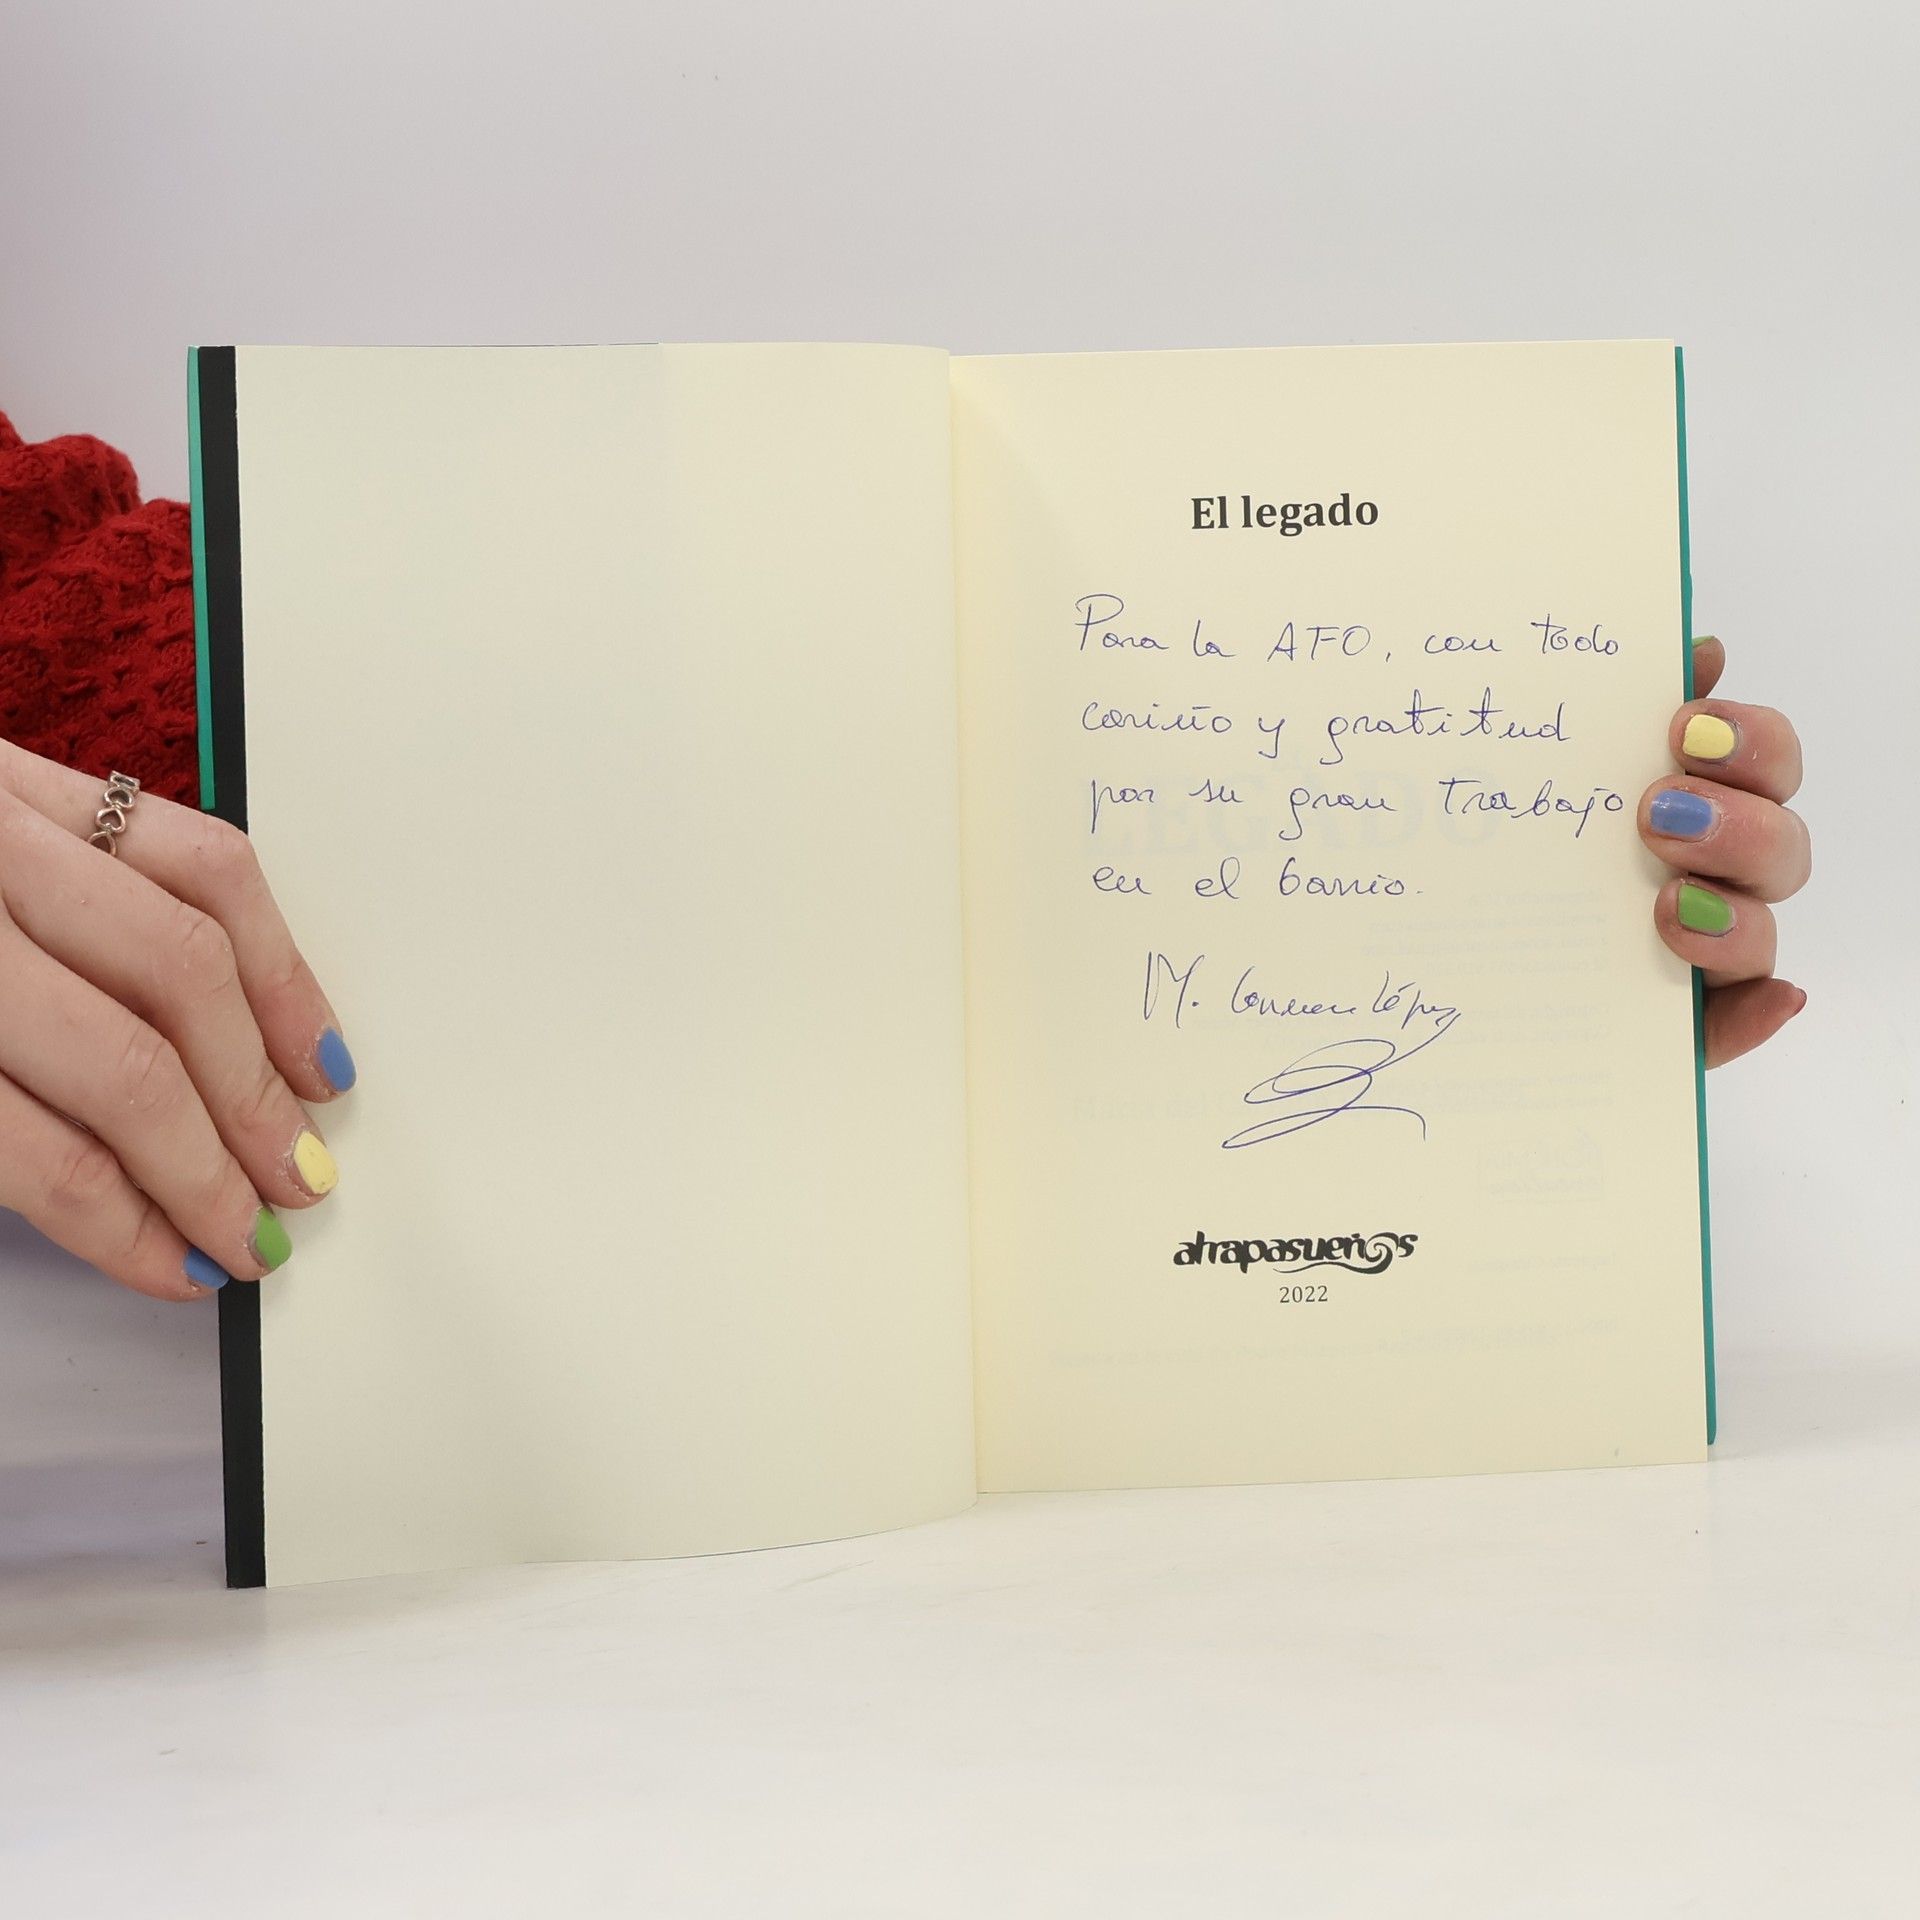 El legado
Para la AFO, con todo
cariño y gratitud
por su gran trabajo
en el barrio.
M. Carmen López
atrapasueños
2022